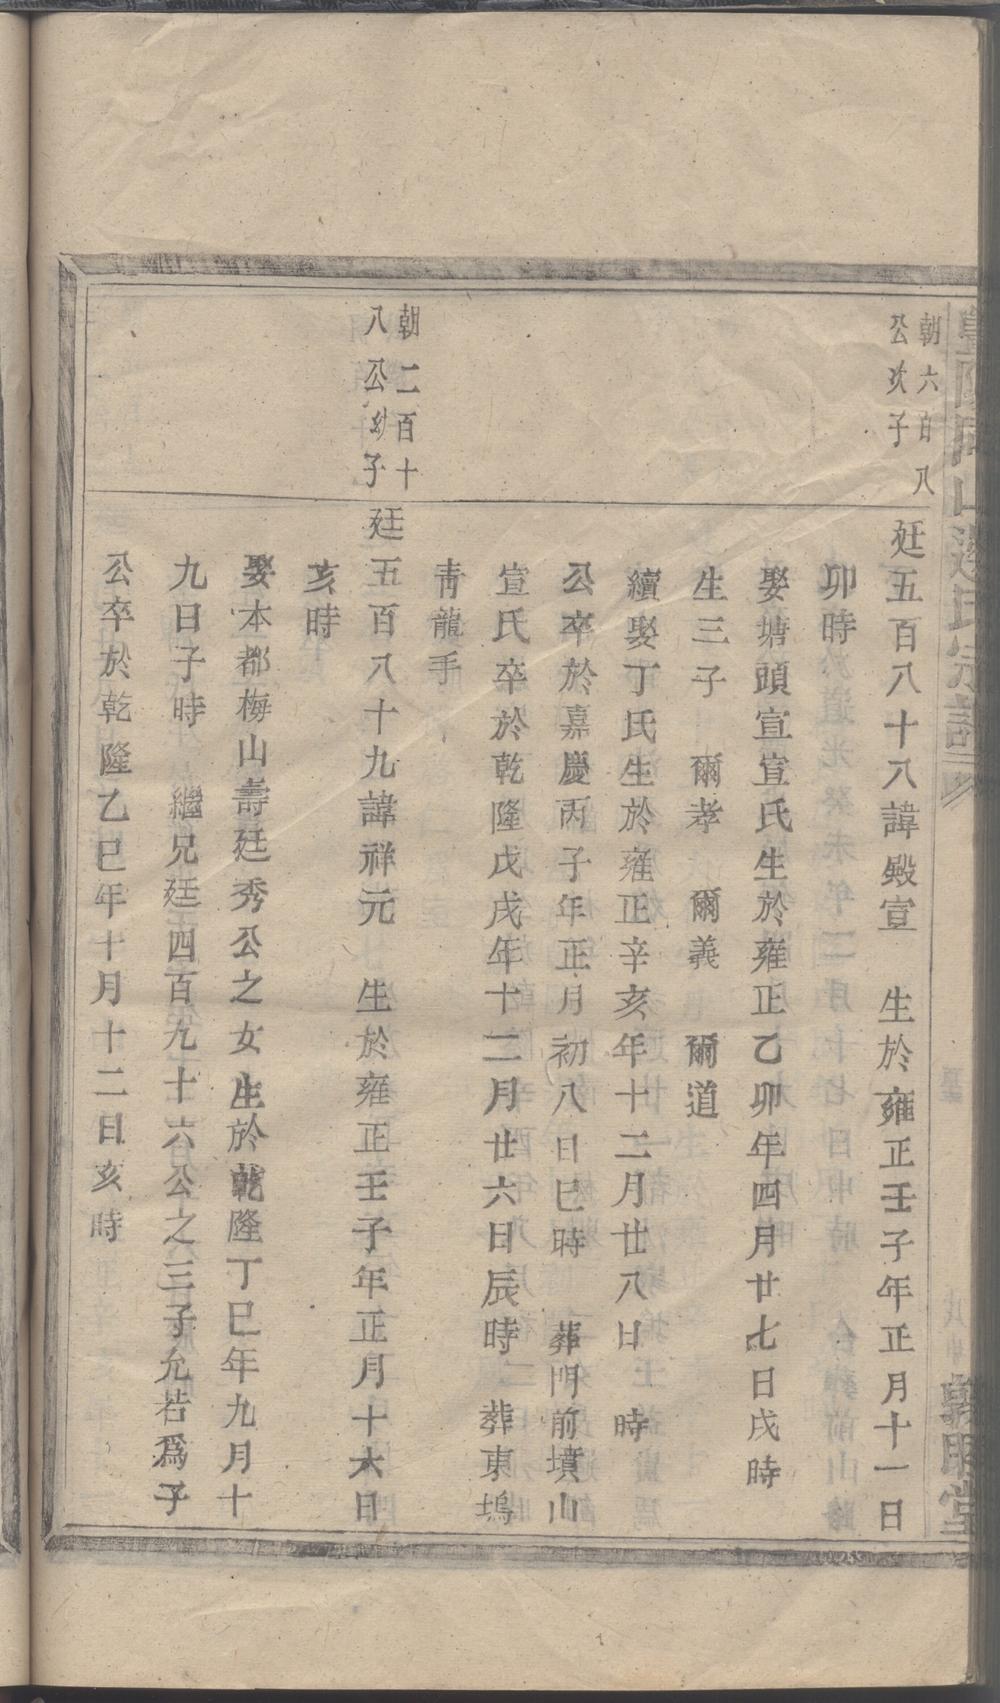 朝六百八
公次子
廷五百八十八諱殿宣　生於雍正壬子年正月十一日
卯時
娶塘頭宣宣氏生於雍正乙卯年四月廿七日戌時
生三子　爾孝　爾義　爾道
續娶丁氏生於雍正辛亥年十二月廿八日　時
公卒於嘉慶丙子年正月初八日巳時　葬門前墳山
宣氏卒於乾隆戊戌年十二月廿六日辰時　葬東塢
青龍手
朝二百十
八公幼子
廷五百八十九諱祥元　生於雍正壬子年正月十六日
亥時
娶本都梅山壽廷秀公之女生於乾隆丁巳年九月十
九日子時　繼兄廷四百九十六公之三子允若為子
公卒於乾隆乙巳年十月十二日亥時